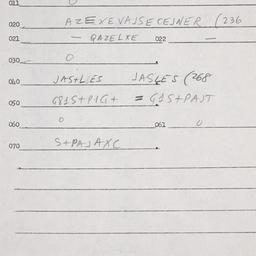 011 0
020 AZEXEVAJSECEJNER (236
021 - GAZELXE 022 -
030 0
040 JASTLES JASLES (268
050 G81S+PIG+ = G1S+PAJT
060 0 061 0
070 S+PAJAXC